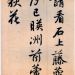 請看石上藤蘿
月已映洲前蘆
荻花